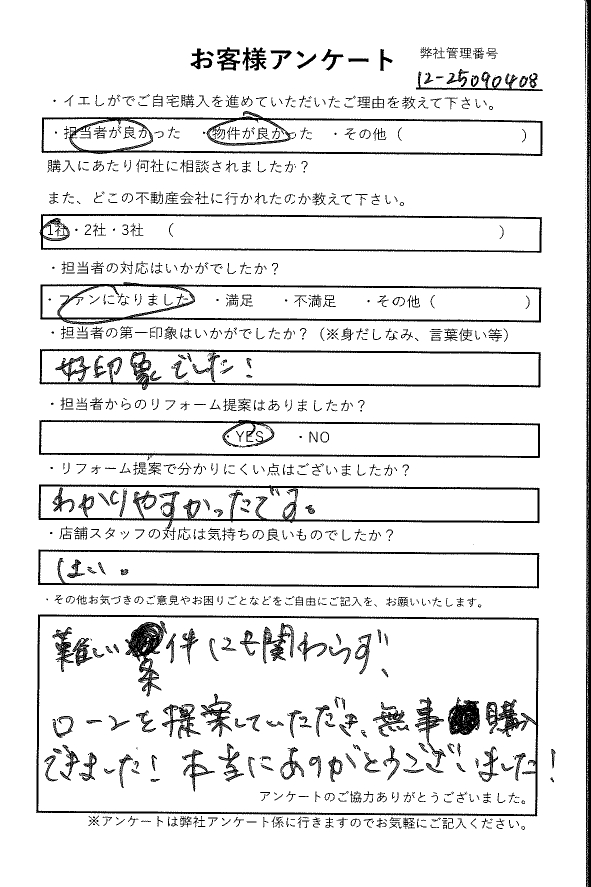 お客様アンケート
弊社管理番号
12-25090408
・イエしがでご自宅購入を進めていただいたご理由を教えて下さい。
・担当者が良かった ・物件が良かった ・その他（ ）
購入にあたり何社に相談されましたか？
また、どこの不動産会社に行かれたのか教えて下さい。
1社・2社・3社 （ ）
・担当者の対応はいかがでしたか？
・ファンになりました ・満足 ・不満足 ・その他（ ）
・担当者の第一印象はいかがでしたか？（※身だしなみ、言葉使い等）
好印象でした！
・担当者からのリフォーム提案はありましたか？
・YES ・NO
・リフォーム提案で分かりにくい点はございましたか？
わかりやすかったです。
・店舗スタッフの対応は気持ちの良いものでしたか？
はい。
・その他お気づきのご意見やお困りごとなどをご自由にご記入を、お願いいたします。
難しい条件にも関わらず、
ローンを提案していただき、無事購入
できました！本当にありがとうございました！
アンケートのご協力ありがとうございました。
※アンケートは弊社アンケート係に行きますのでお気軽にご記入ください。